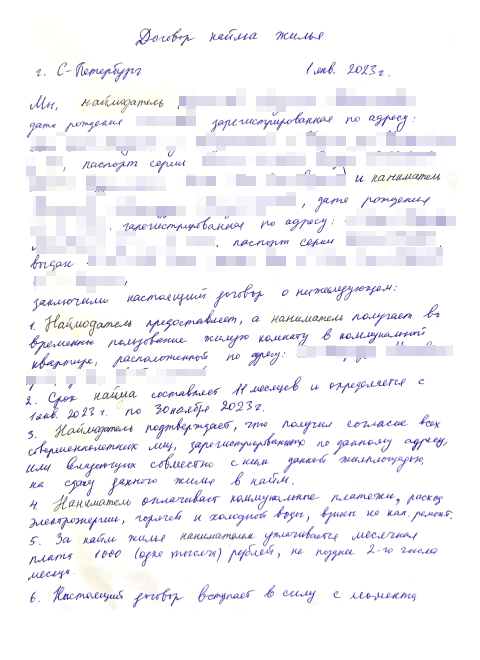 Договор найма жилья
г. С-Петербург 1 янв. 2023г.
Мы, наймодатель
дата рождения зарегистрированная по адресу:
, паспорт серии
и наниматель
, дата рождения
зарегистрированная по адресу:
. паспорт серии
выдан
заключили настоящий договор о нижеследующем:
1. Наймодатель предоставляет, а наниматель получает во
временное пользование жилую комнату в коммунальной
квартире, расположенной по адресу:
2. Срок найма составляет 11 месяцев и определяется с
1 янв. 2023 г. по 30 ноября 2023г.
3. Наймодатель подтверждает, что получил согласие всех
совершеннолетних лиц, зарегистрированных по данному адресу,
или владеющих совместно с ним данной жилплощадью,
на сдачу данного жилья в найм.
4. Наниматель оплачивает коммунальные платежи, расход
электроэнергии, горячей и холодной воды, взносы на кап. ремонт.
5. За найм жилья нанимателем уплачивается месячная
плата 1000 (одна тысяча) рублей, не позднее 2-го числа
месяца.
6. Настоящий договор вступает в силу с момента